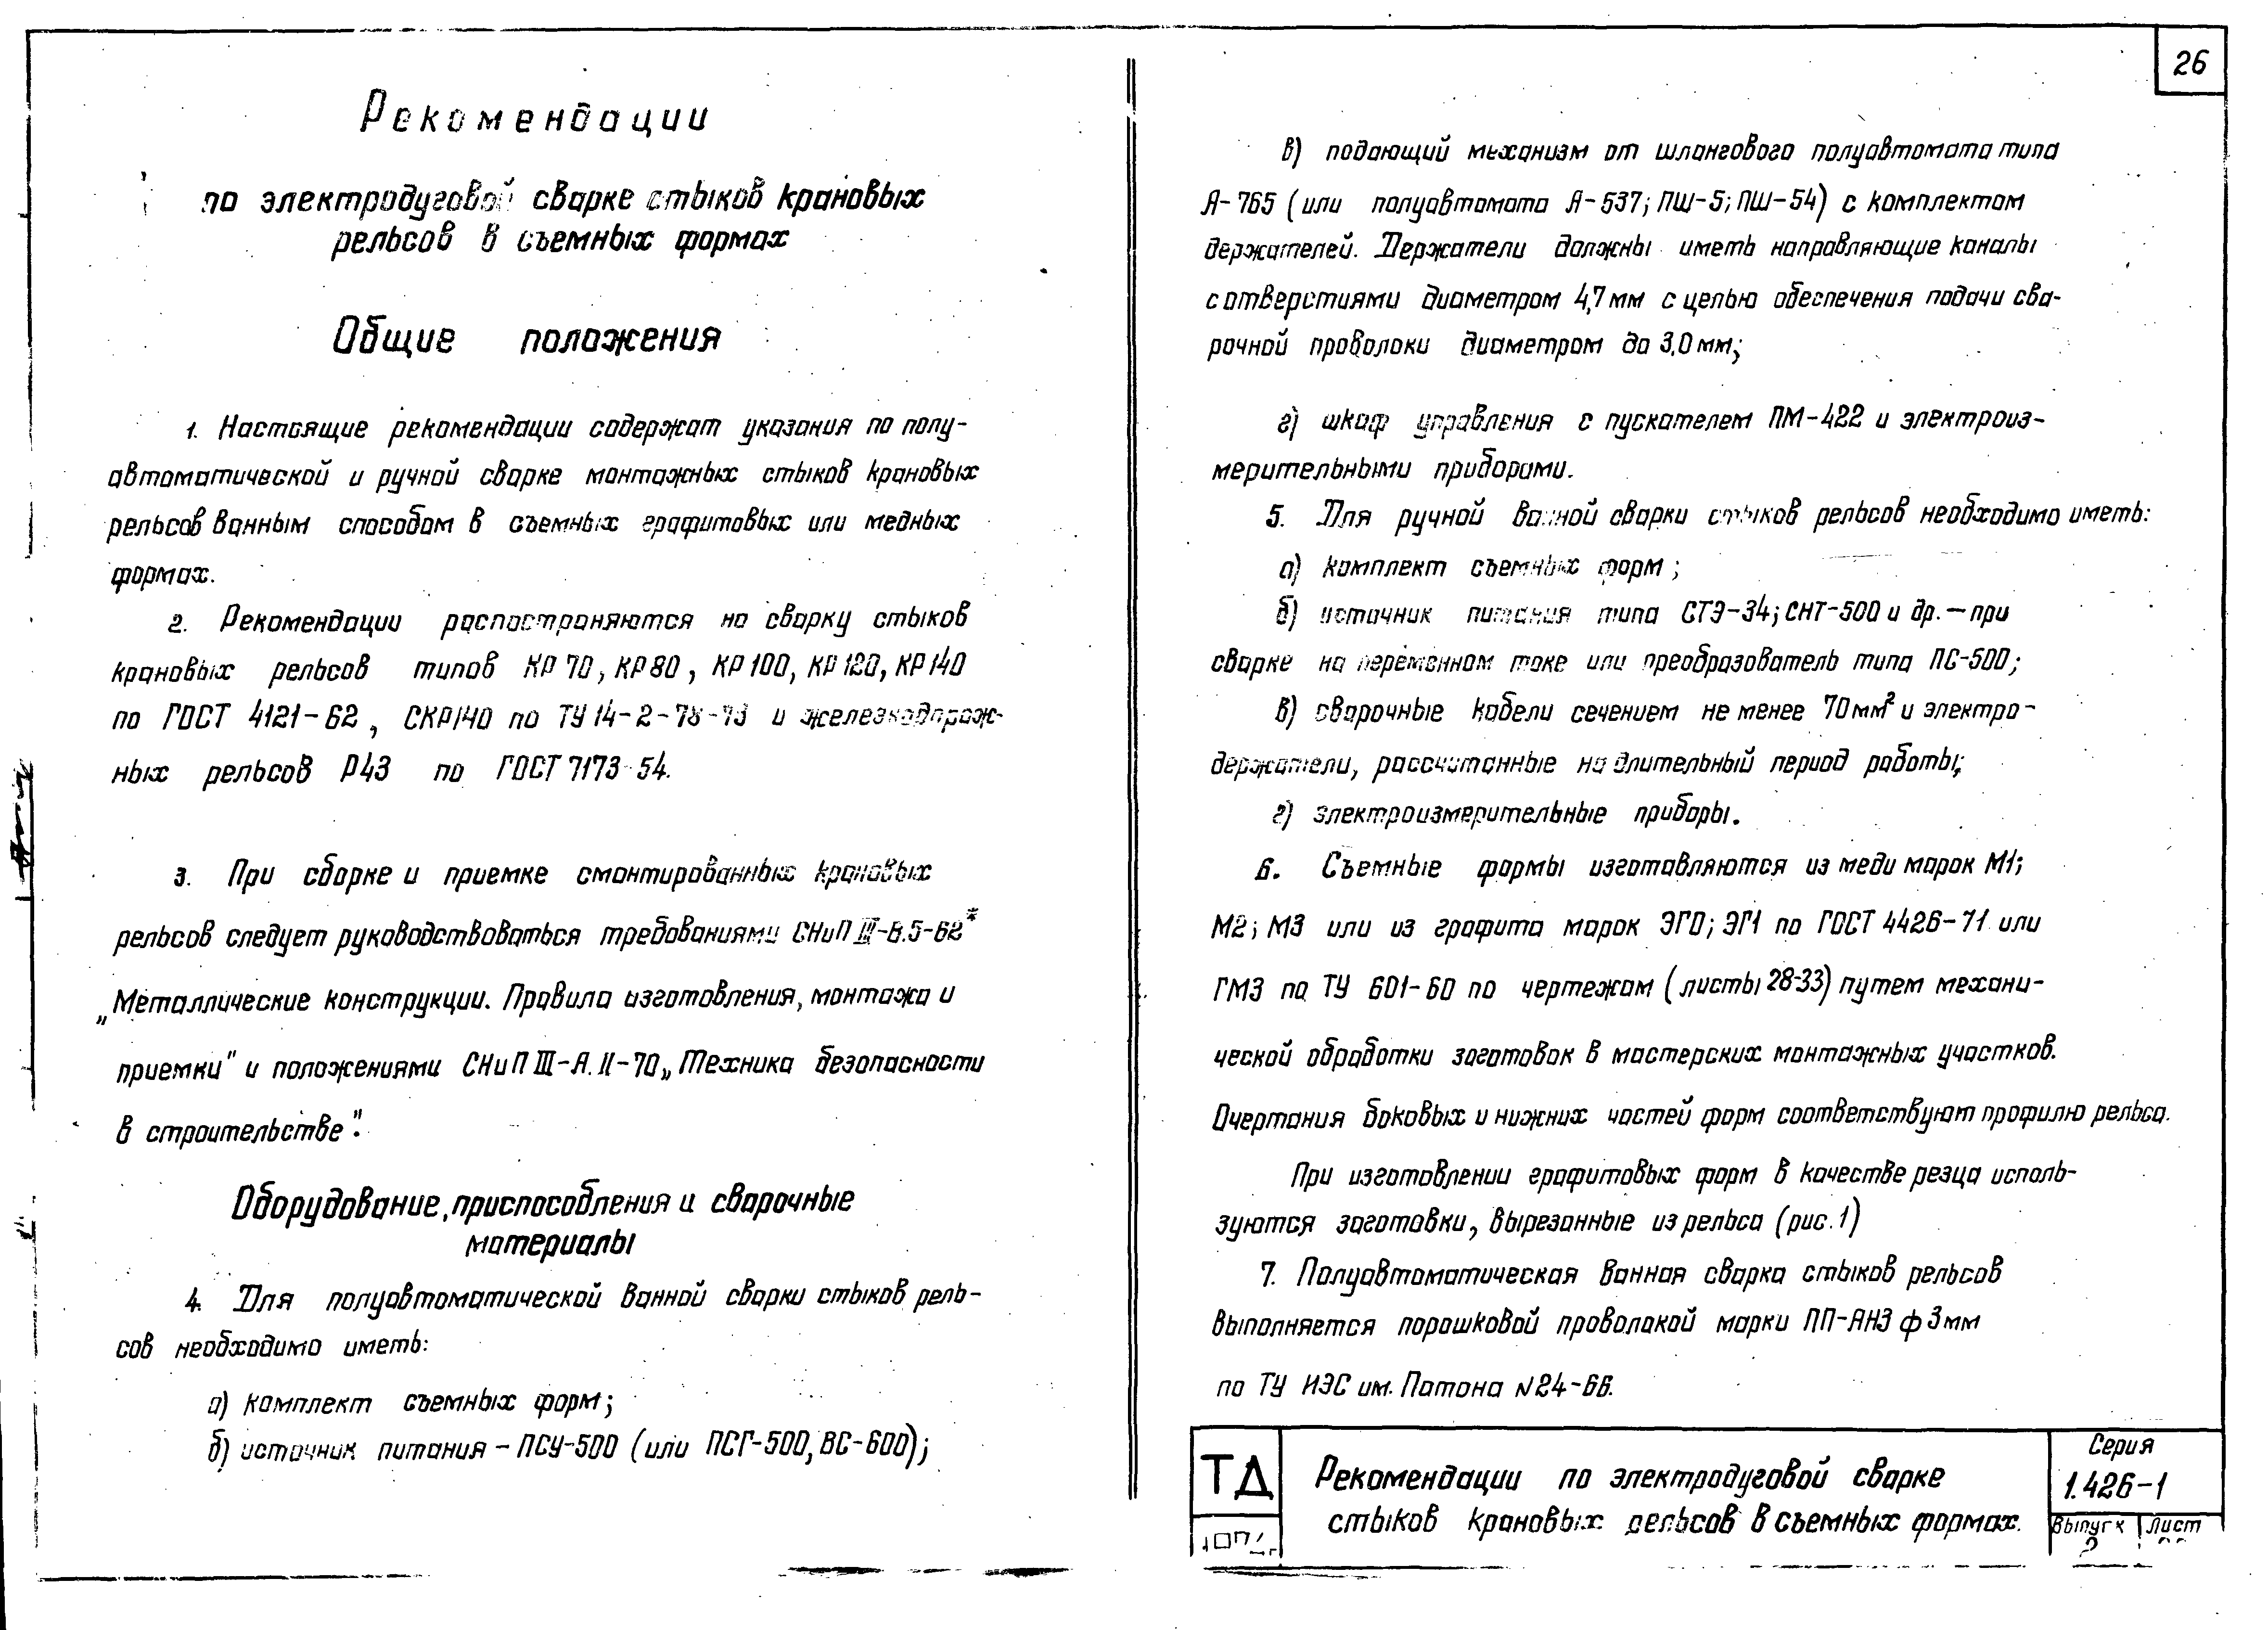 Рекомендации
по электродуговой сварке стыков крановых
рельсов в съемных формах
Общие положения
1. Настоящие рекомендации содержат указания по полу-
автоматической и ручной сварке монтажных стыков крановых
рельсов ванным способом в съемных графитовых или медных
формах.
2. Рекомендации распостраняются на сварку стыков
крановых рельсов типов КР 70, КР 80, КР 100, КР 120, КР 140
по ГОСТ 4121-62, СКР140 по ТУ 14-2-78-73 и железнодорож-
ных рельсов Р43 по ГОСТ 7173-54.
3. При сборке и приемке смонтированных крановых
рельсов следует руководствоваться требованиями СНиП III-В.5-62*
„Металлические конструкции. Правила изготовления, монтажа и
приемки" и положениями СНиП III-А.11-70 „Техника безопасности
в строительстве".
Оборудование, приспособления и сварочные
материалы
4. Для полуавтоматической ванной сварки стыков рель-
сов необходимо иметь:
а) комплект съемных форм;
б) источник питания - ПСУ-500 (или ПСГ-500, ВС-600);
26
в) подающий механизм от шлангового полуавтомата типа
А-765 (или полуавтомата А-537; ПШ-5; ПШ-54) с комплектом
держателей. Держатели должны иметь направляющие каналы
с отверстиями диаметром 4,7 мм с целью обеспечения подачи сва-
рочной проволоки диаметром до 3,0 мм;
г) шкаф управления с пускателем ПМ-422 и электроиз-
мерительными приборами.
5. Для ручной ванной сварки стыков рельсов необходимо иметь:
а) комплект съемных форм;
б) источник питания типа СТЭ-34; СНТ-500 и др. - при
сварке на переменном токе или преобразователь типа ПС-500;
в) сварочные кабели сечением не менее 70 мм² и электро-
держатели, рассчитанные на длительный период работы;
г) электроизмерительные приборы.
6. Съемные формы изготавляются из меди марок М1;
М2; М3 или из графита марок ЭГ0; ЭГ1 по ГОСТ 4426-71 или
ГМЗ по ТУ 601-60 по чертежам (листы 28-33) путем механи-
ческой обработки заготовок в мастерских монтажных участков.
Очертания боковых и нижних частей форм соответствуют профилю рельса.
При изготовлении графитовых форм в качестве резца исполь-
зуются заготовки, вырезанные из рельса (рис. 1)
7. Полуавтоматическая ванная сварка стыков рельсов
выполняется порошковой проволокой марки ПП-АН3 ф 3 мм
по ТУ ИЭС им. Патона N 24-66.
ТД
Рекомендации по электродуговой сварке
стыков крановых рельсов в съемных формах.
Серия
1.426-1
Выпуск Лист
2